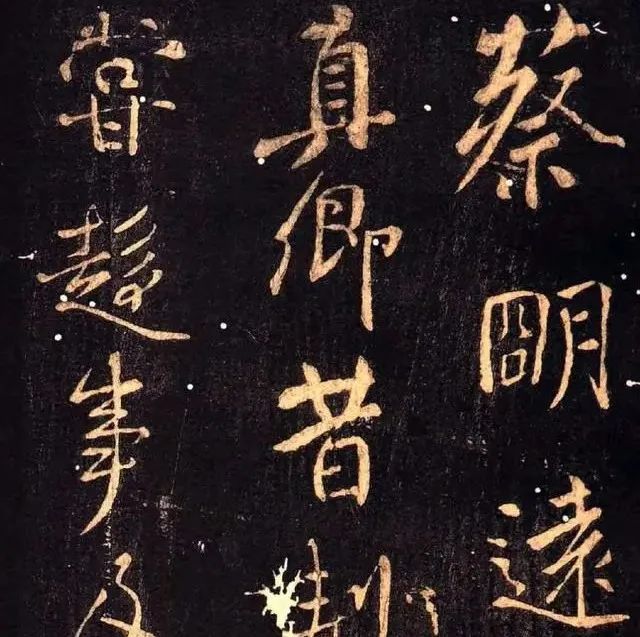 蔡明遠
真卿昔制
嘗趍事及